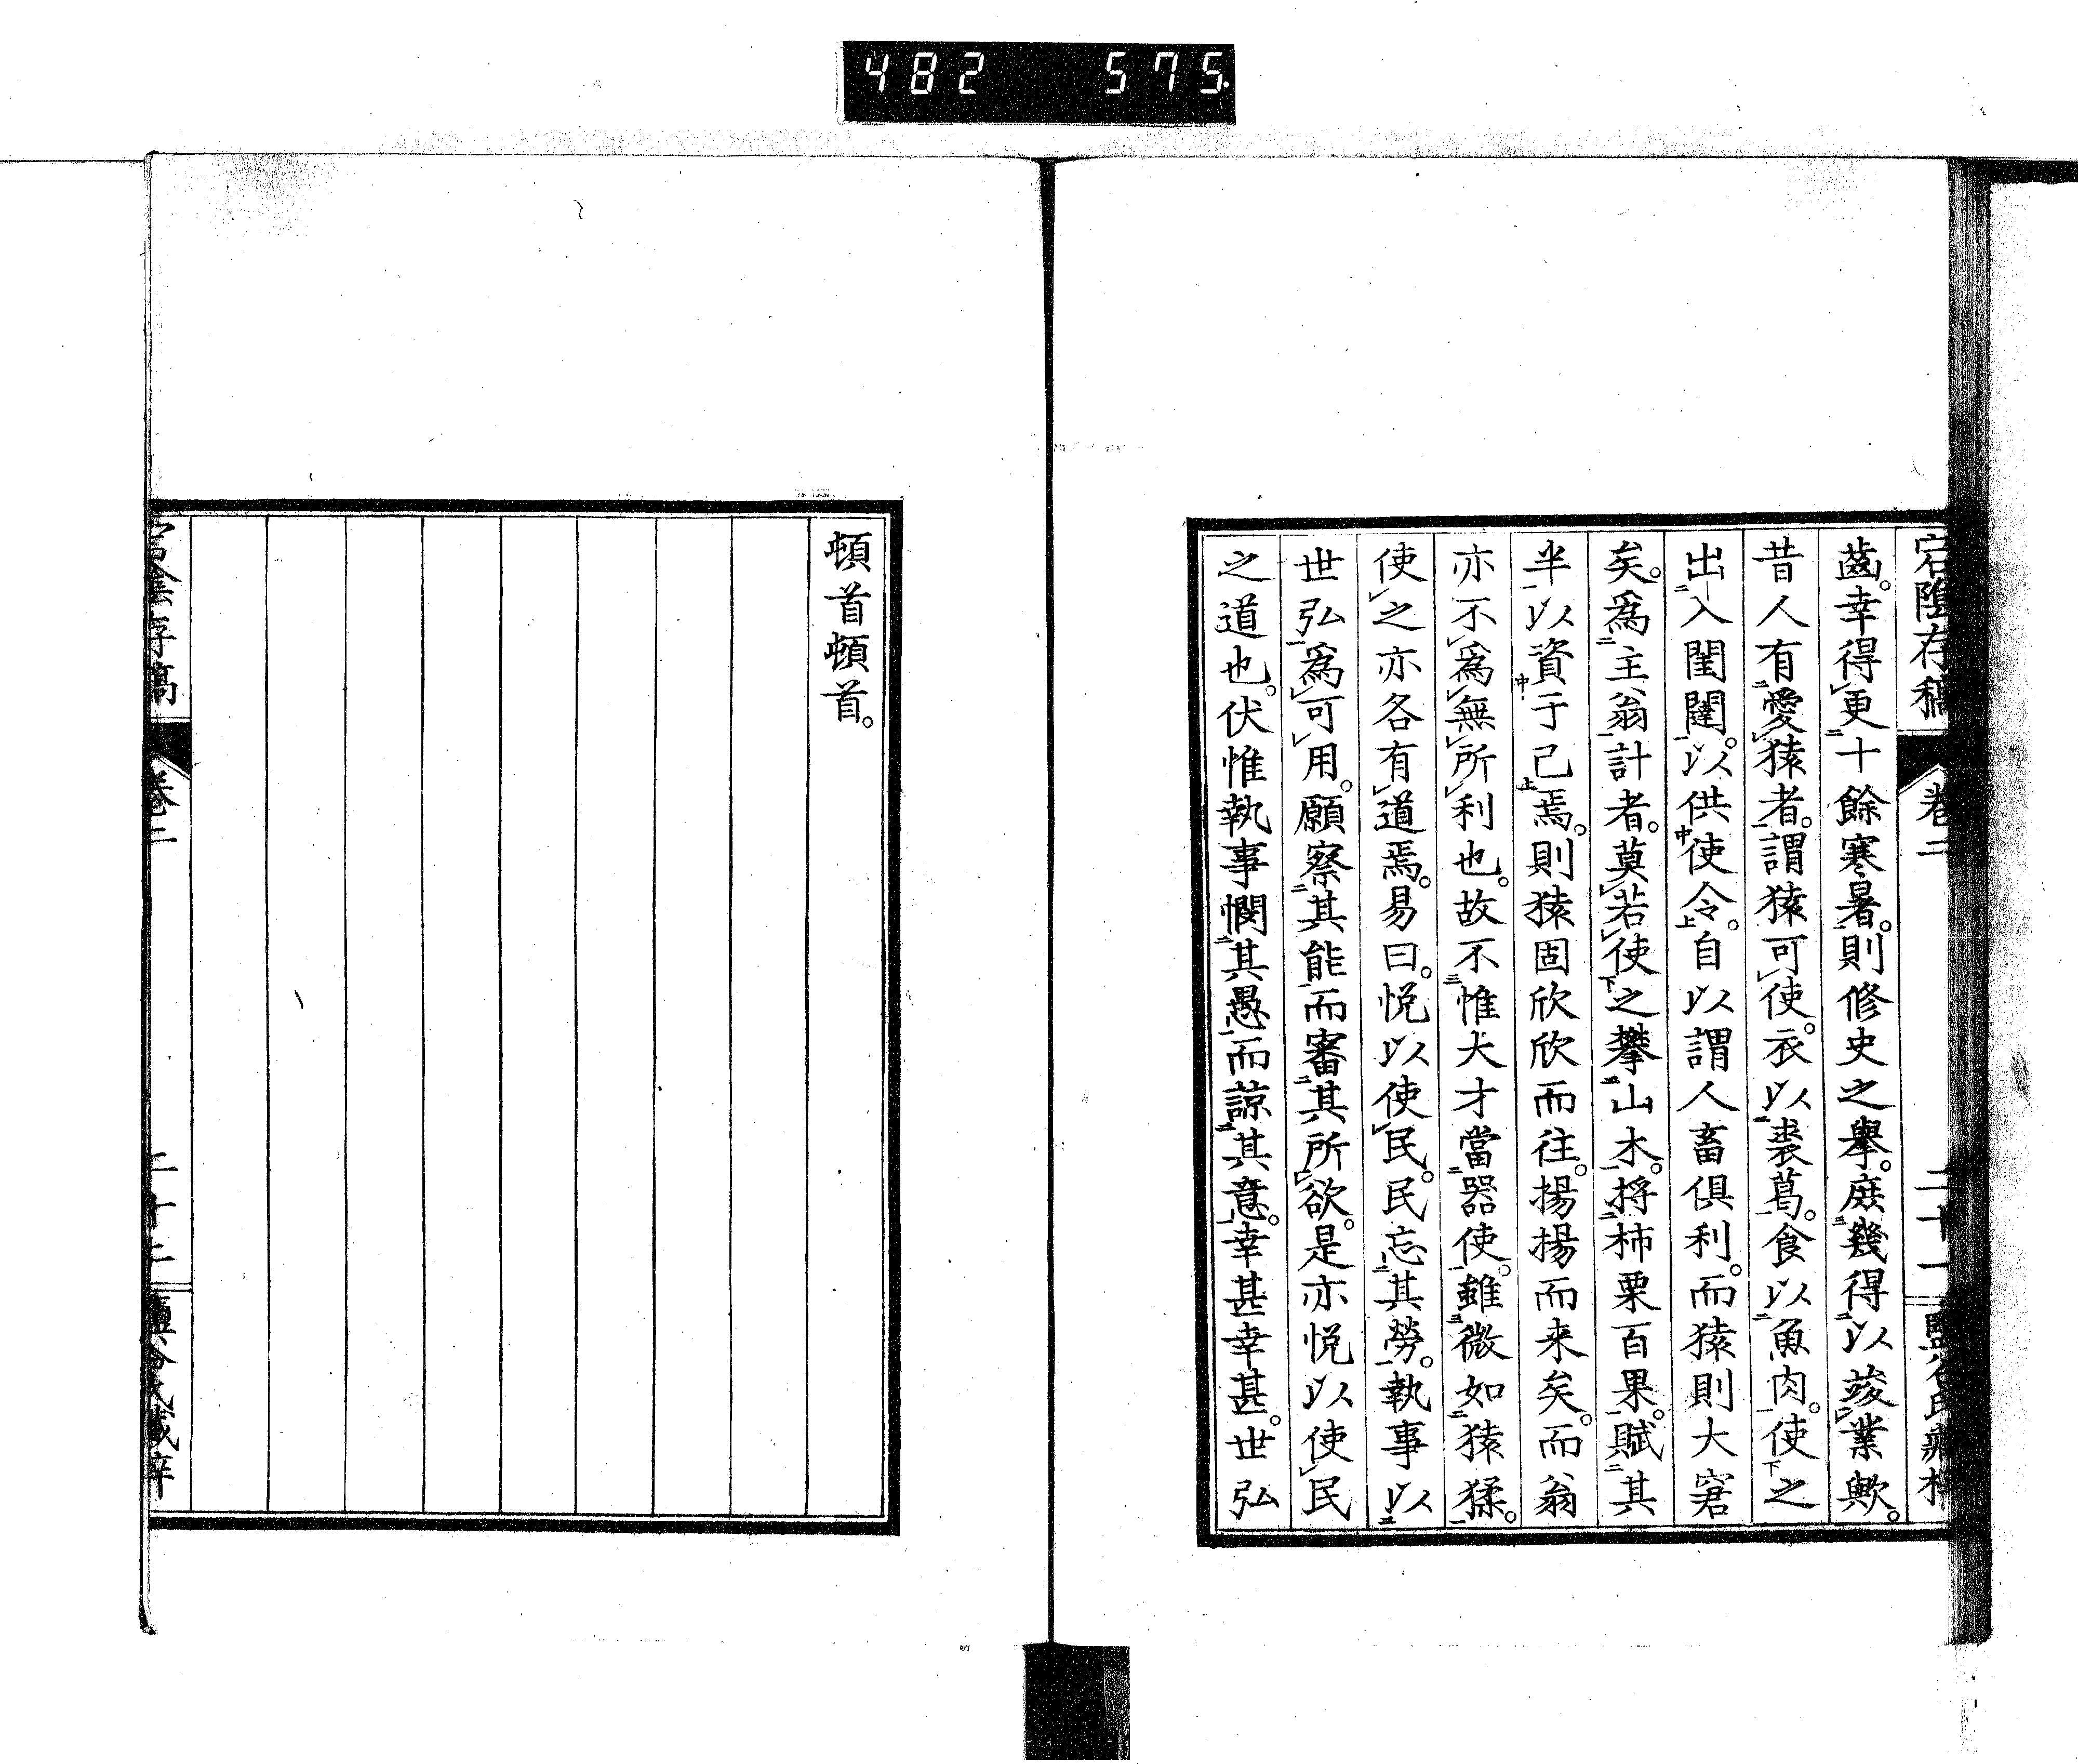 482 575
宕陰存稿 卷二 二十一
齒。幸得更十餘寒暑。則修史之擧。庶幾得以竣業歟。
昔人有愛猿者。謂猿可使。衣以裘葛。食以魚肉。使之
出入閨闥。以供使令。自以謂人畜俱利。而猿則大窘
矣。爲主翁計者。莫若使之攀山木。捋柿栗百果。賦其
半以資于己焉。則猿固欣欣而往。揚揚而来矣。而翁
亦不爲無所利也。故不惟大才當器使。雖微如猿猱。
使之亦各有道焉。易曰。悦以使民。民忘其勞。執事以
世弘爲可用。願察其能而審其所欲。是亦悦以使民
之道也。伏惟執事憫其愚而諒其意。幸甚幸甚。世弘
頓首頓首。
宕陰存稿 卷二 二十二